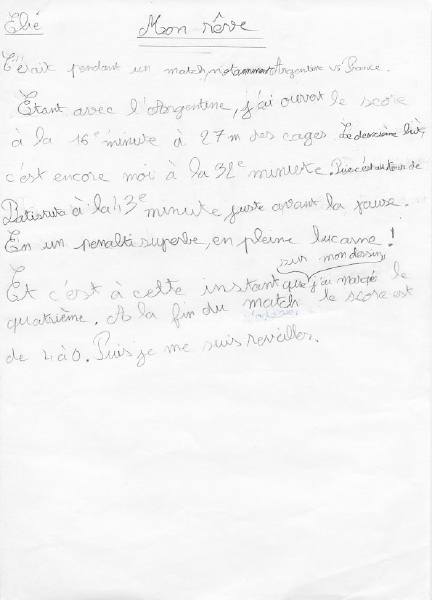 Elié Mon rêve
C'était pendant un match, notamment Argentine vs France.
Étant avec l'Argentine, j'ai ouvert le score
à la 16e minute à 27 m des cages. Le deuxième but,
c'est encore moi à la 32e minute. Puis c'est au tour de
Batistuta à la 43e minute juste avant la pause.
En un penalti superbe, en pleine lucarne !
sur mon dessin,
Et c'est à cette instant que j'ai marqué le
quatrième. A la fin du match le score est
de 4 à 0. Puis je me suis reveiller.